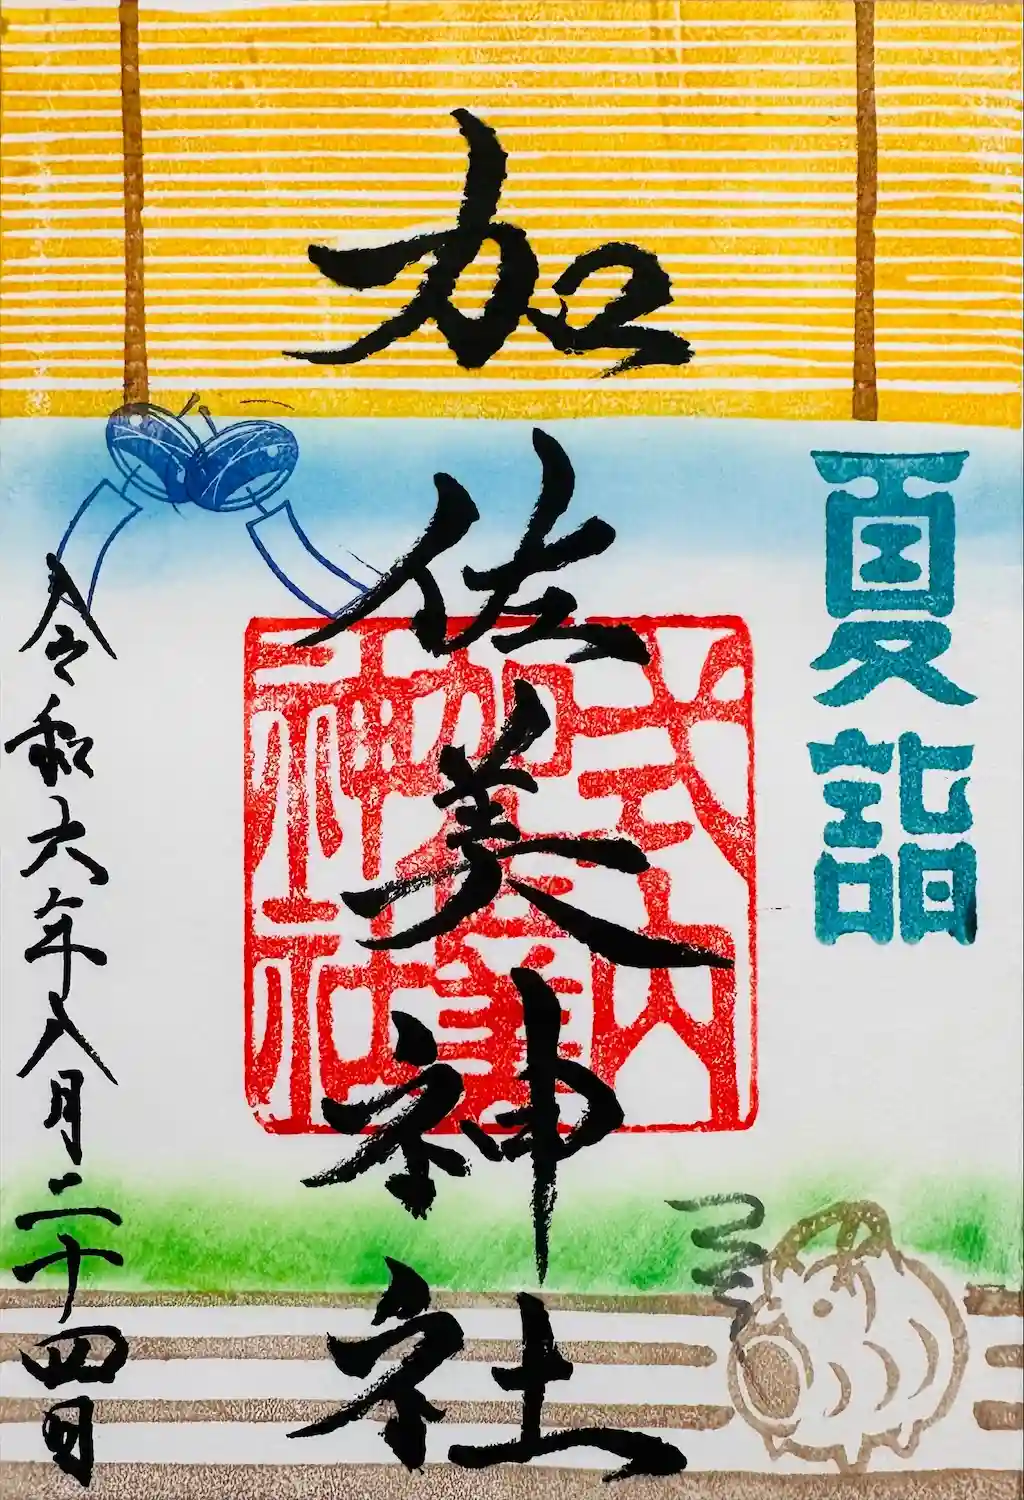 夏詣
加佐美神社
式内
加佐美
神社
令和六年八月二十四日